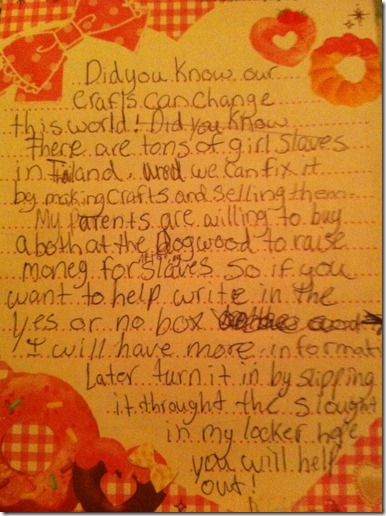 Did you know our
crafts can change
this world! Did you know
there are tons of girl slaves
in Tailand, we can fix it
by making crafts and selling them.
My parents are willing to buy
a both at the Dogwood to raise
moneg for slaves so if you
want to help write in the
yes or no box
I will have more informati
Later turn it in by slipping
it throught the slought
in my locker hope
you will help
out!